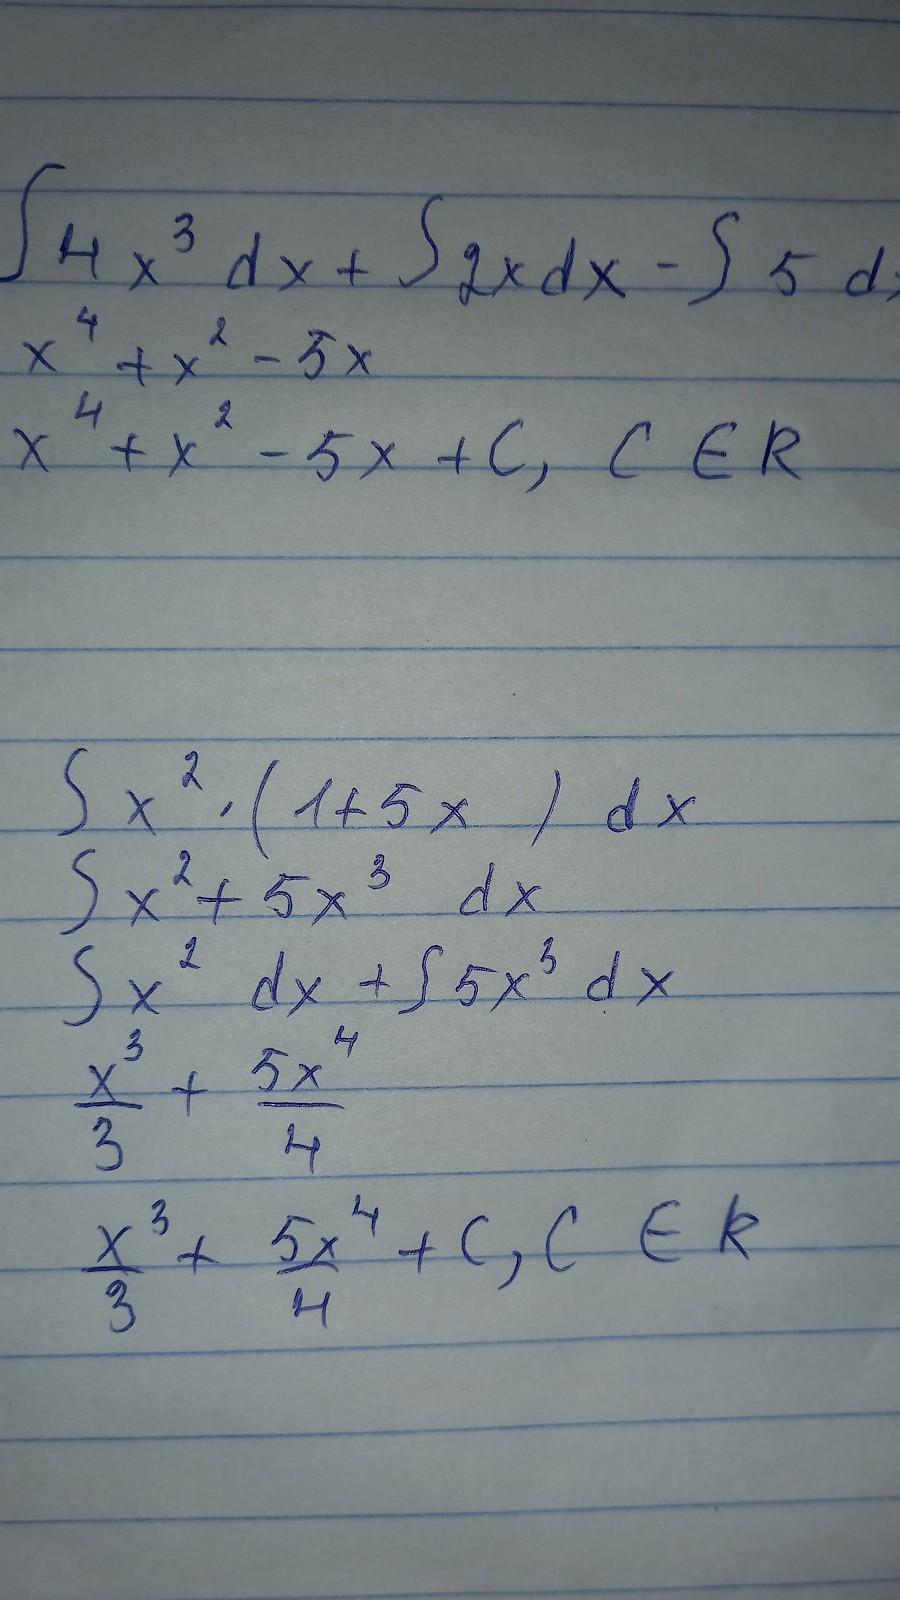 ∫ 4x³ dx + ∫ 2x dx - ∫ 5 d
x⁴ + x² - 5x
x⁴ + x² - 5x + C, C ∈ R
∫ x² · (1+5x ) dx
∫ x² + 5x³ dx
∫ x² dx + ∫ 5x³ dx
x³/3 + 5x⁴/4
x³/3 + 5x⁴/4 + C, C ∈ R